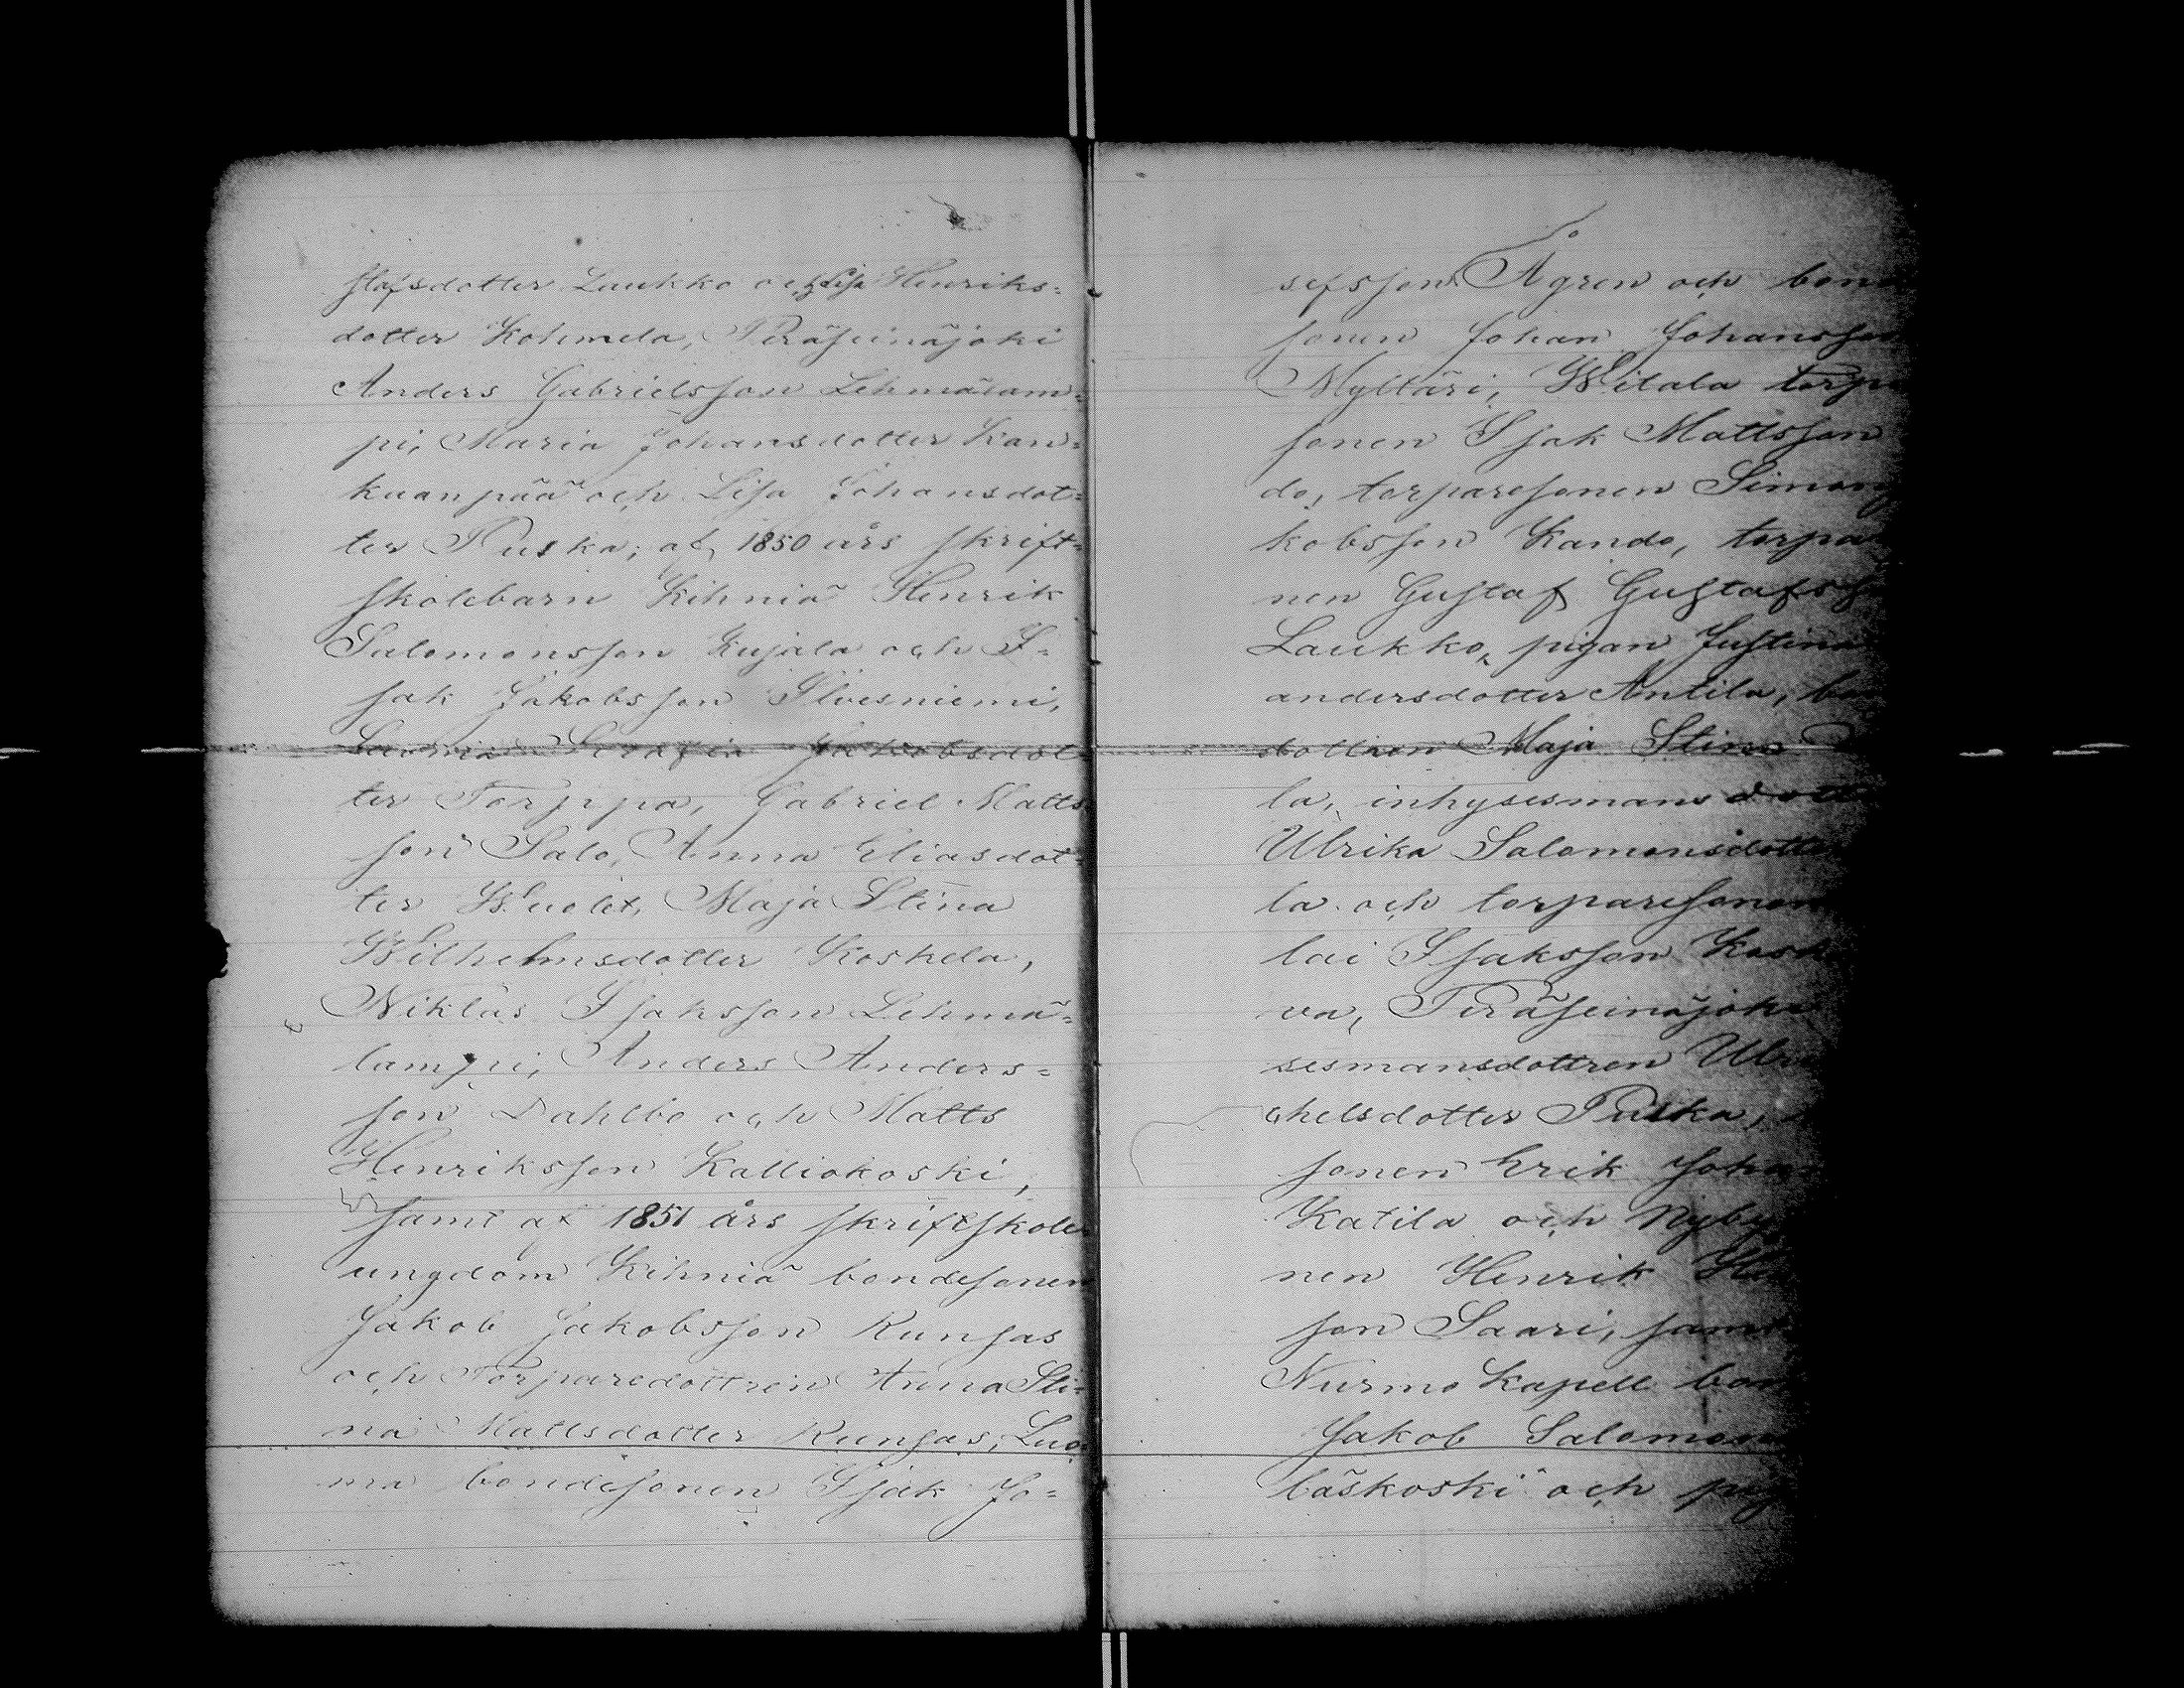 stafsdotter Laukko och Lisa Henriks=
dotter Kohmela, Peräseinäjoki
Anders Gabrielsson Lehmälam=
pi, Maria Johansdotter Kan=
kuanpää och Lisa Johansdot=
ter Puska; af 1850 års skrift=
skolebarn Kihniä Henrik
Salomonsson Kujala och I=
sak Jakobsson Ilvesniemi,
Luoma Serafia Jakobsdot=
ter Torppa, Gabriel Matts
son Salo, Anna Eliasdot=
ter Maja Stina
Wilhelmsdotter Koskela,
Niklas Isaksson Lehmä=
lampi, Anders Anders=
son Dahlbo och Matts
Henriksson Kalliokoski,
samt af 1851 års skriftskole
ungdom Kihniä bondesonen
Jakob Jakobsson Rungas
och Torparedottren Anna Sti=
na Mattsdotter Rungas, Luo=
ma bondesonen Isak Jo=
sefsson Ågren och
sonen Johan Johansson
Myltäri, Witala
sonen Isak Mattsson
do, torparesonen Simon
kobsson Kando,
nen Gustaf Gustafss
Laukko, pigan Justina
andersdotter Antila,
dottren Maja Stina
la, inhysesmans
Ulrika Salomonsdotter
la och torparesonen
lai Isaksson
va, Peräseinäjoki
sesmansdottren
chelsdotter Puska,
sonen Erik
Katila och
nen Henrik
son Saari, samt
Nurmo Kapell
Jakob
läskoski och